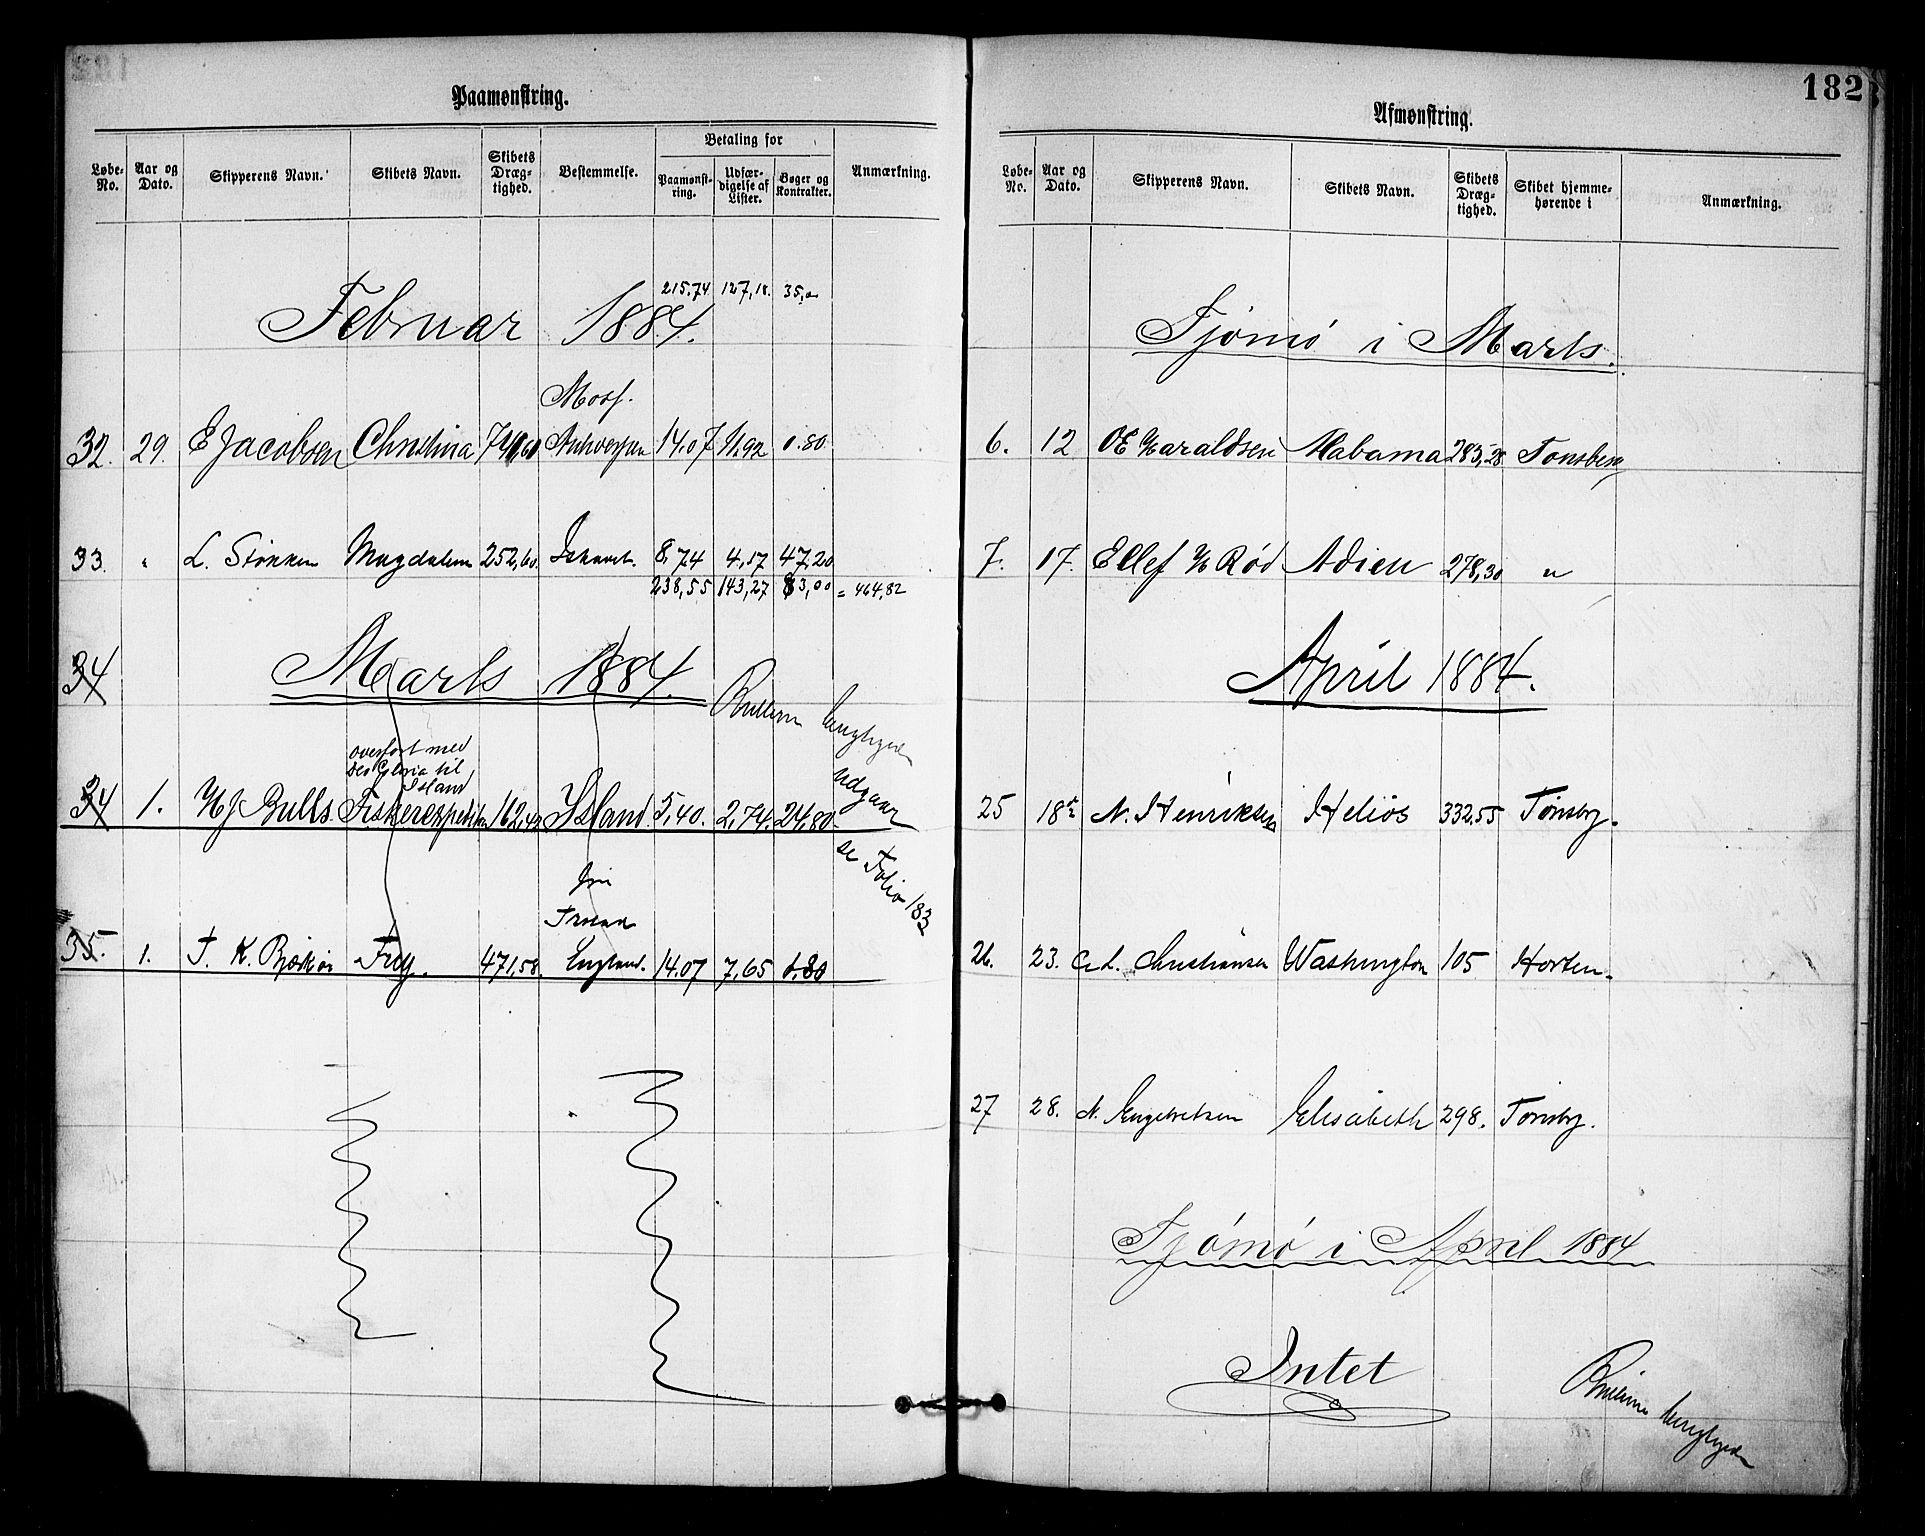 Paamønstring.
Løbe-No. Aar og Dato. Skipperens Navn. Skibets Navn. Skibets Dræg-tighed. Bestemmelse. Betaling for Paamønst-ring. Udfær-digelse af Lister. Bøger og Kontrakter. Anmærkning.
215.74 127,18. 35,00
Februar 1884.
Moss.
32. 29. E Jacobsen Christina 740,60 Antverpen 14.07 11.92 0.80
33. " L. Støkken Magdalena 252,60 Ishavet. 8,74 4,17 47,20
238,55 143,27 83,00 = 464,82
34 Marts 1884.
overført med
Deo Gloria til
Island
34 1. H J Bulls Fiskerexpedition 162,42 Island. 5,40. 2,74. 24,80
udgaar
se Folio 183
35. 1. T. K. Bjøskø Frey. 471,58 England. 14.07 7,65 0.80
182
Afmønstring.
Løbe-No. Aar og Dato. Skipperens Navn. Skibets Navn. Skibets Dræg-tighed. Skibet hjemme-hørende i Anmærkning.
Tjømø i Marts.
6. 12 OE Haraldsen Alabama 283,28 Tønsberg
7. 17. Ellef H Rød Adieu 278,30 "
April 1884.
25 18de N. Henriksen Helios 332.55 Tønsbg.
26. 23. C. L. Christiansen Washington 105 Horten.
27 28. N. Engebretsen Elisabeth 298. Tønsbg.
Tjømø i April 1884
Intet